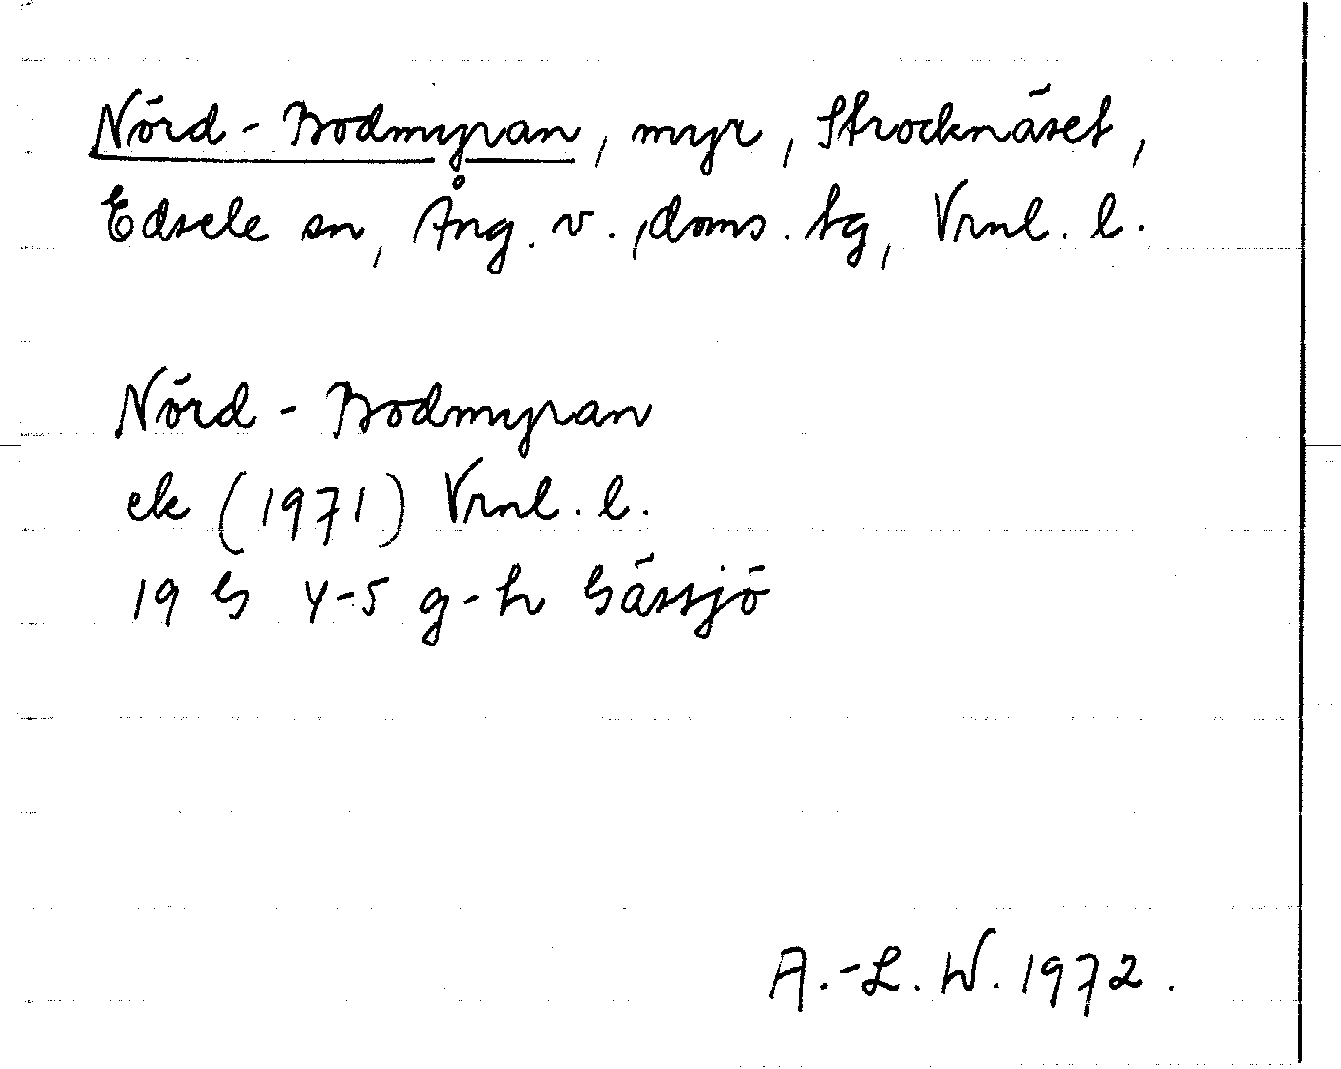 Nörd-Bodmyran, myr, Strocknäset,
Edsele sn, Ång. v., doms. tg, Vrnl. l.
Nörd-Bodmyran
ek (1971) Vrnl. l.
19 G 4-5 g-h Gässjö
A.-L. W. 1972.